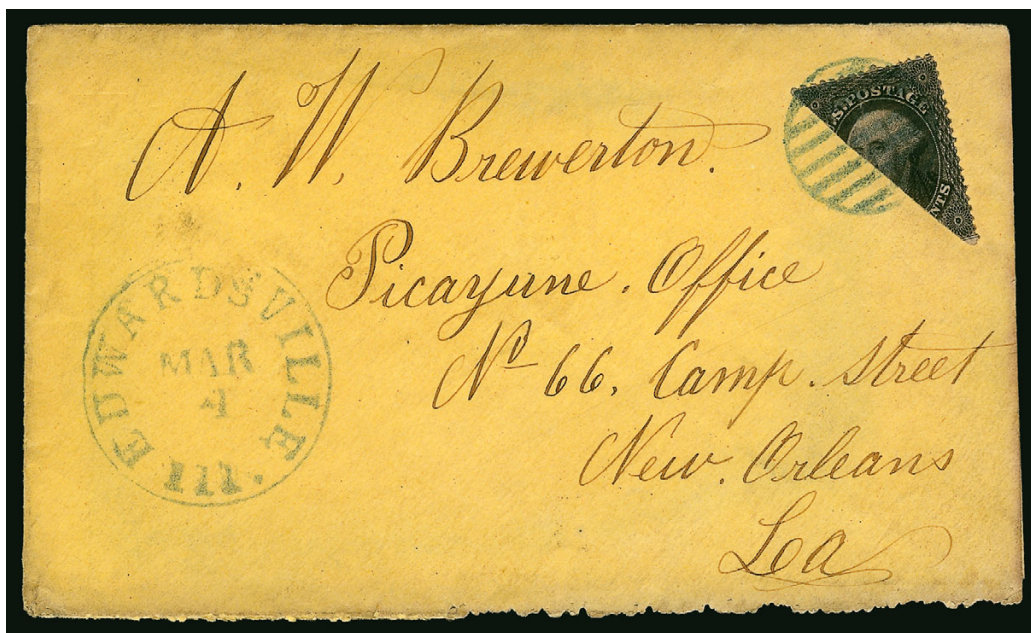 A. W. Brewerton.
Picayune. Office
No 66. Camp. Street
New. Orleans
La
EDWARDSVILLE
MAR
4
Ill.
U.S. POSTAGE
NTS